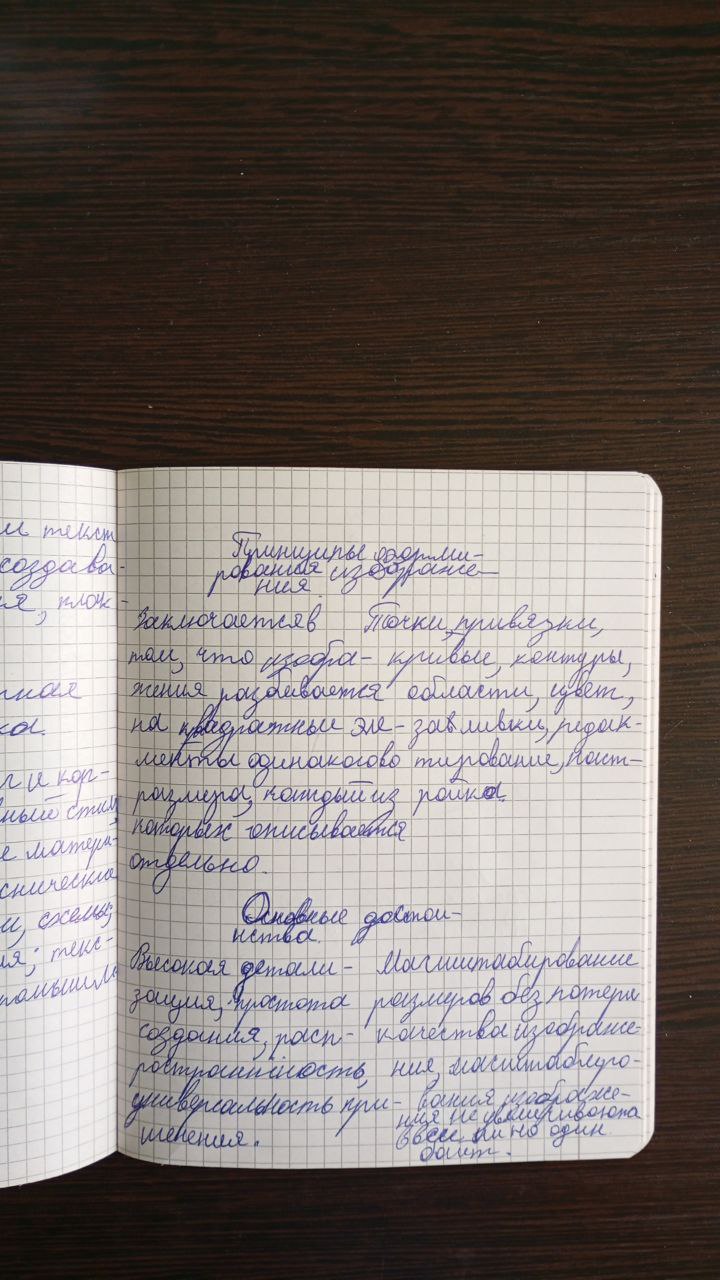 м текст
создава-
ия, плак-
ка.
ный стиль
е матери-
снические
и, схемы,
ия; текс-
Принципы форми-
рования изображе-
ния.
Заключается в
том, что изобра-
жения разбивается
на квадратные эле-
менты одинакового
размера, каждый из
которых описывается
отдельно.
Точки, привязки,
кривые, контуры,
области, цвет,
заливки, редак-
тирование, наст-
ройка.
Основные достои-
нства.
Высокая детали-
зация, простота
создания, расп-
ространённость,
универсальность при-
менения.
Масштабирование
размеров без потери
качества изображе-
ния, масштабиро-
вания изображе-
ния не увеличиваются
в весе ни на один
байт.